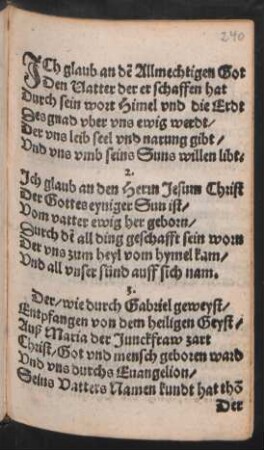 240
ICh glaub an dē Allmechtigen Got
Den Vatter der er schaffen hat
Durch sein wort Himel vnd die Erdt
Des gnad vber vns ewig werdt/
Der vns leib seel vnd narung gibt/
Vnd vns vmb seins Suns willen libt.
2.
Ich glaub an den Herrn Jesum Christ
Der Gottes eyniger Sun ist/
Vom vatter ewig her geborn/
Durch dē all ding geschafft sein worn
Der vns zum heyl vom hymel kam/
Vnd all vnser sünd auff sich nam.
3.
Der/wie durch Gabriel geweyst/
Entpfangen von dem heiligen Geyst/
Auß Maria der Junckfraw zart
Christ/Got vnd mensch geboren ward
Vnd vns durchs Euangelion/
Seins Vatters Namen kundt hat thō
Der